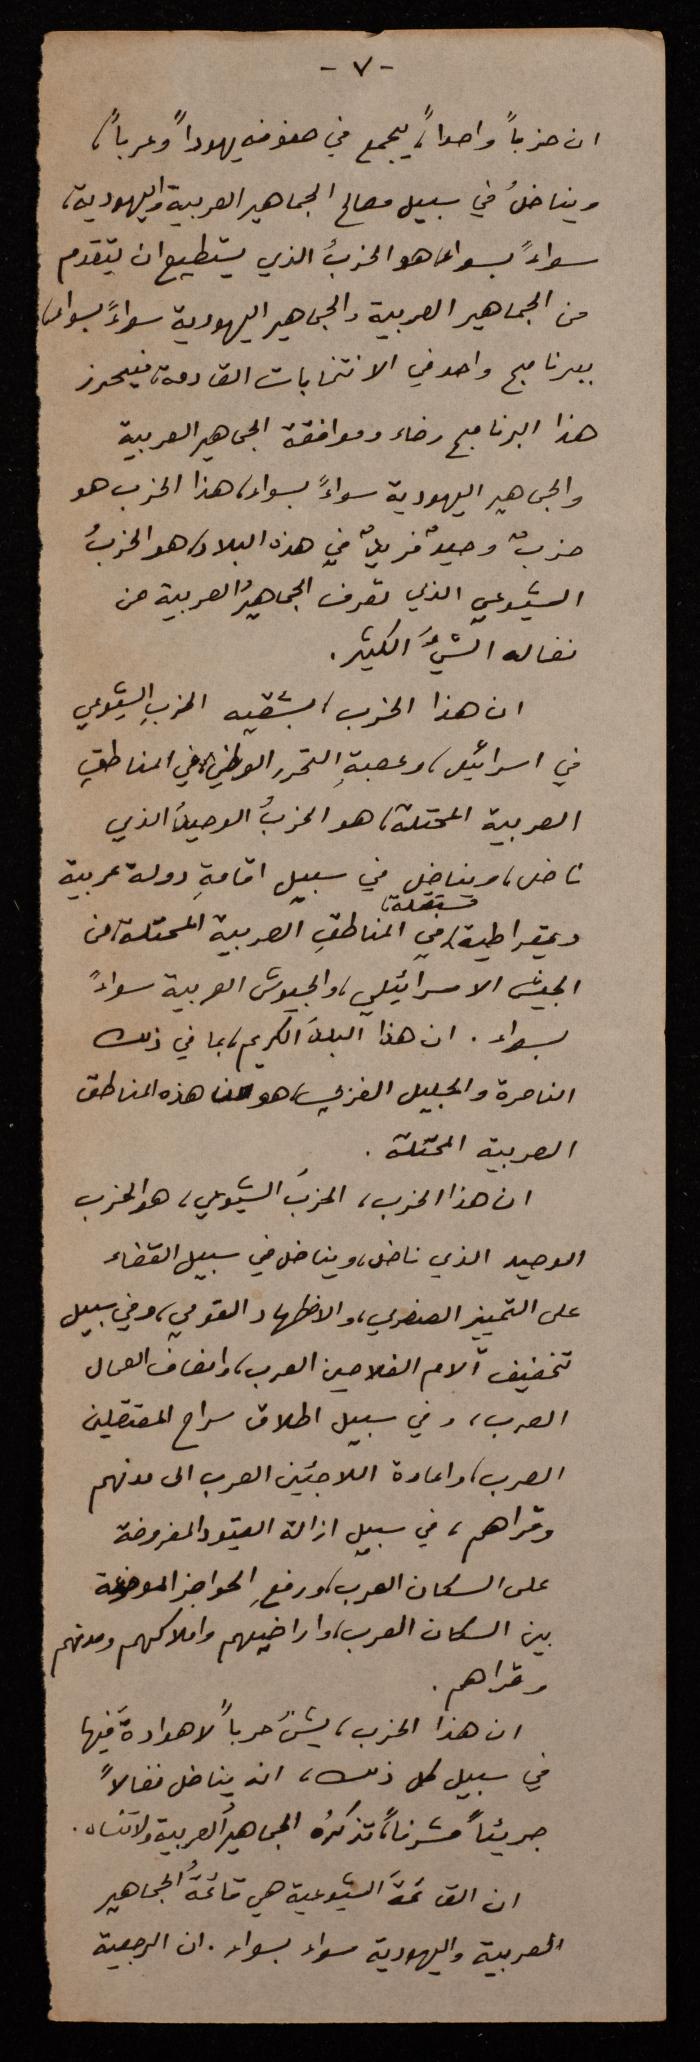 - ٧ -
ان حزباً واحداً، يجمع في صفوفه يهوداً وعرباً،
ويناضلُ في سبيل مصالح الجماهير العربية واليهودية،
سواءً بسواء، هو الحزبُ الذي يستطيع ان يتقدم
من الجماهير العربية والجماهير اليهودية سواءً بسواء،
ببرنامج واحد في الانتخابات القادمة، فيحرز
هذا البرنامج رضاء وموافقة الجماهير العربية
والجماهير اليهودية سواءً بسواء، هذا الحزب هو
حزبٌ وحيدٌ فريدٌ في هذه البلاد، هو الحزبُ
الشيوعي الذي تعرف الجماهيرُ العربية عن
نضاله الشيءَ الكثير.
ان هذا الحزب، بشقيه الحزبِ الشيوعي
في اسرائيل، وعصبةِ التحرر الوطني في المناطقِ
العربية المحتلة، هو الحزبُ الوحيدُ الذي
ناضل، ويناضل في سبيل اقامةِ دولة عربية
مستقلة،
ديمقراطية، في المناطقِ العربية المحتلة، من
الجيش الاسرائيلي، والجيوش العربية سواءً
بسواء. ان هذا البلدَ الكريم، بما في ذلك
الناصرة والجليل الغربي، هو من هذه المناطق
العربية المحتلة.
ان هذا الحزب، الحزبَ الشيوعي، هو الحزب
الوحيد الذي ناضل، ويناضل في سبيل القضاء
على التمييز العنصري، والاضطهاد القومي، وفي سبيل
تخفيف آلام الفلاحين العرب، وانصاف العمال
العرب، وفي سبيل اطلاق سراح المعتقلين
العرب، واعادة اللاجئين العرب الى مدنهم
وقراهم، في سبيل ازالة القيود المفروضة
على السكان العرب، ورفعِ الحواجز الموضوعة
بين السكان العرب، واراضيهم واملاكهم ومدنهم
وقراهم.
ان هذا الحزب، يشنُ حرباً لا هوادةَ فيها
في سبيل كل ذلك، انه يناضل نضالاً
جريئاً مشرفاً، تذكرُه الجماهيرُ العربية ولا تنساه.
ان القائمةَ الشيوعية هي قائمةُ الجماهير
العربية واليهودية سواء بسواء. ان الرجعية